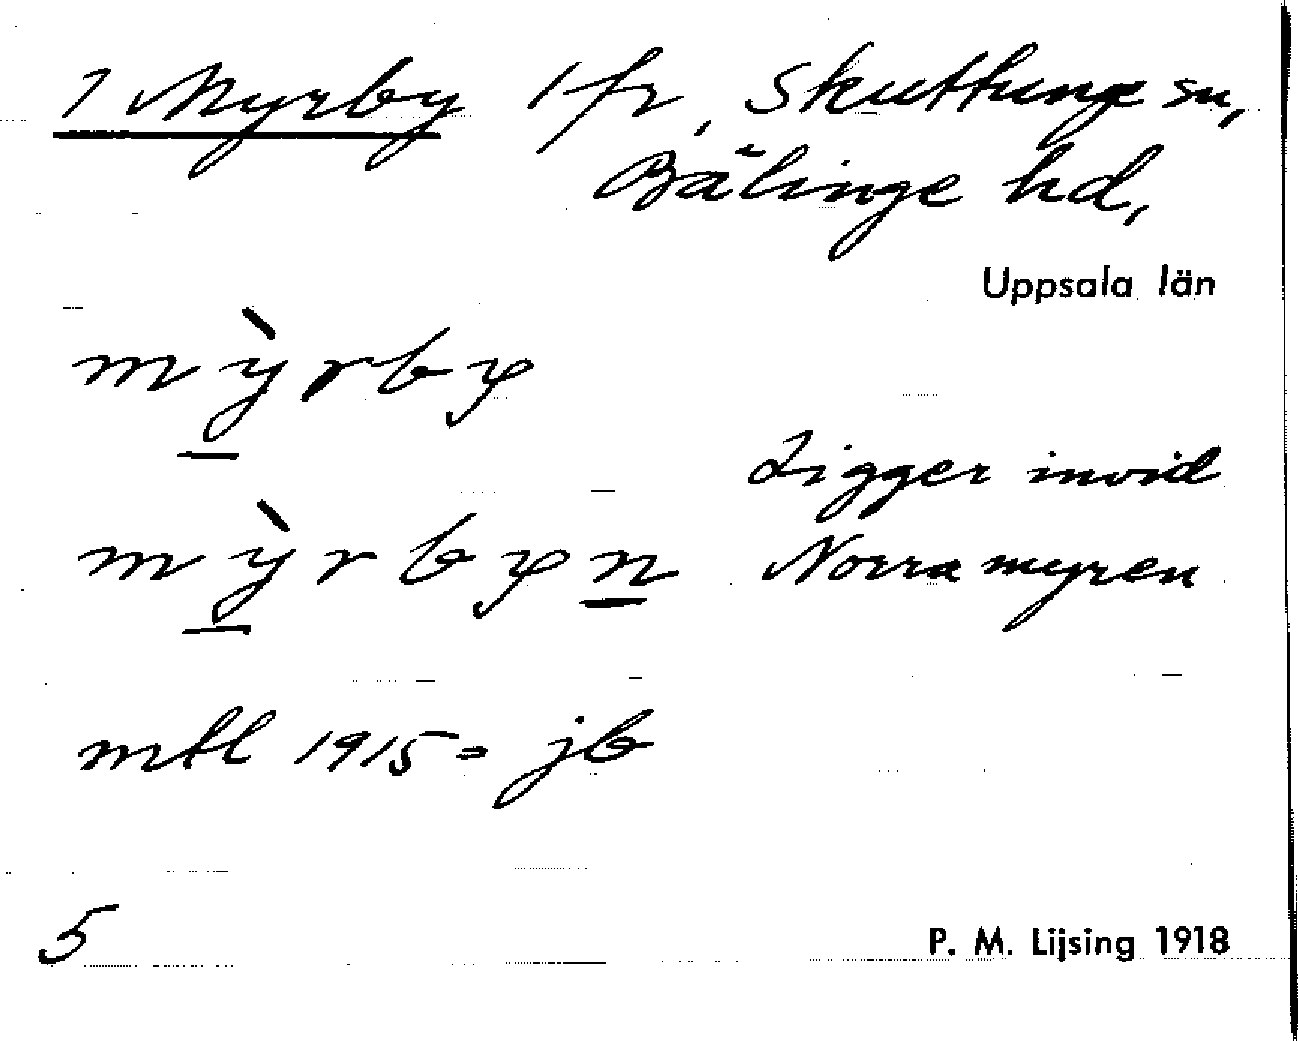 1 Myrby 1 fr, Skuttunge sn,
Bälinge hd,
Uppsala län
mỳrby
Ligger invid
mỳrbyn Norra myren
mtl 1915 = jb
5 P. M. Lijsing 1918